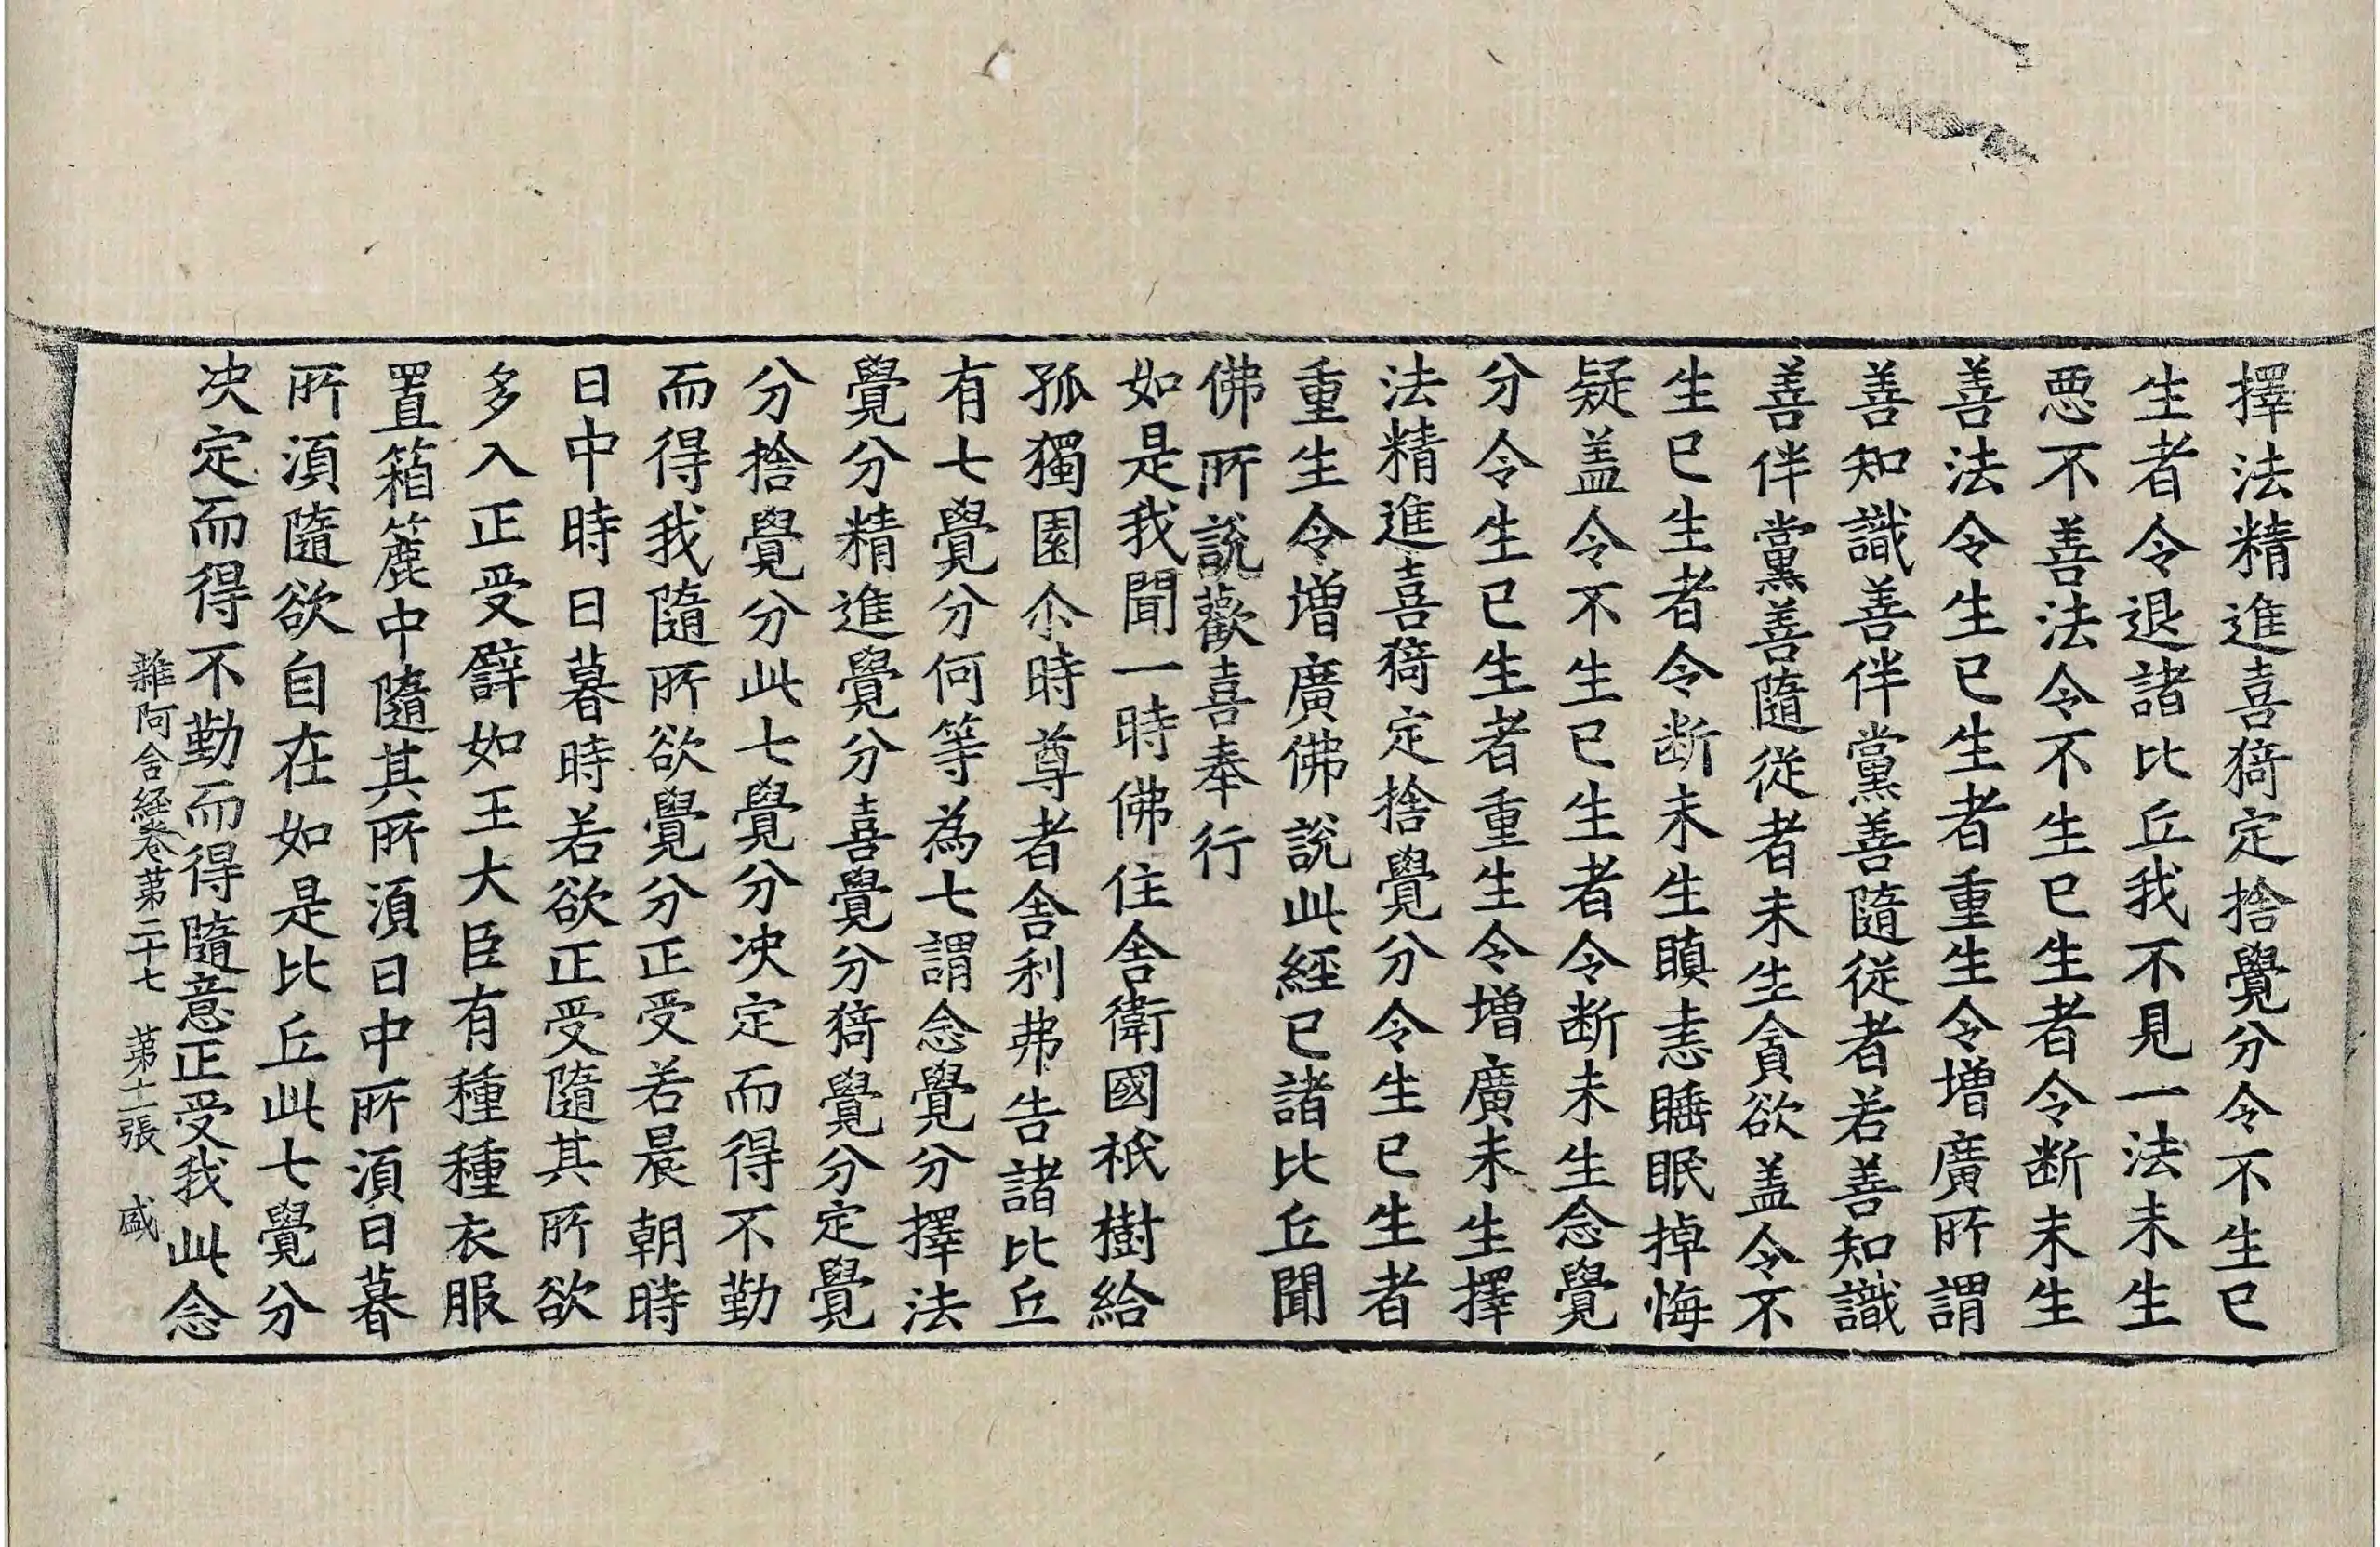 擇法精進喜猗定捨覺分令不生已
生者令退諸比丘我不見一法未生
惡不善法令不生已生者令断未生
善法令生已生者重生令增廣所謂
善知識善伴黨善隨從者若善知識
善伴黨善隨從者未生貪欲盖令不
生已生者令断未生瞋恚睡眠掉悔
疑盖令不生已生者令断未生念覺
分令生已生者重生令增廣未生擇
法精進喜猗定捨覺分令生已生者
重生令增廣佛說此經已諸比丘聞
佛所說歡喜奉行
如是我聞一時佛住舍衛國祇樹給
孤獨園尒時尊者舍利弗告諸比丘
有七覺分何等為七謂念覺分擇法
覺分精進覺分喜覺分猗覺分定覺
分捨覺分此七覺分决定而得不勤
而得我隨所欲覺分正受若晨朝時
日中時日暮時若欲正受隨其所欲
多入正受譬如王大臣有種種衣服
置箱簏中隨其所須日中所須日暮
所須隨欲自在如是比丘此七覺分
决定而得不勤而得隨意正受我此念
雜阿含経卷第二十七　第十二張　盛